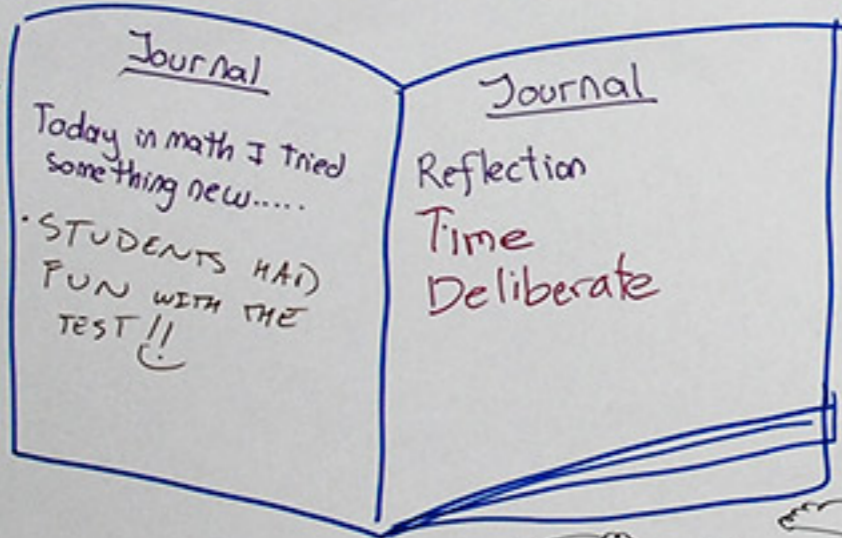 Journal
Today in math I tried
something new.....
· STUDENTS HAD
FUN WITH THE
TEST!!
Journal
Reflection
Time
Deliberate